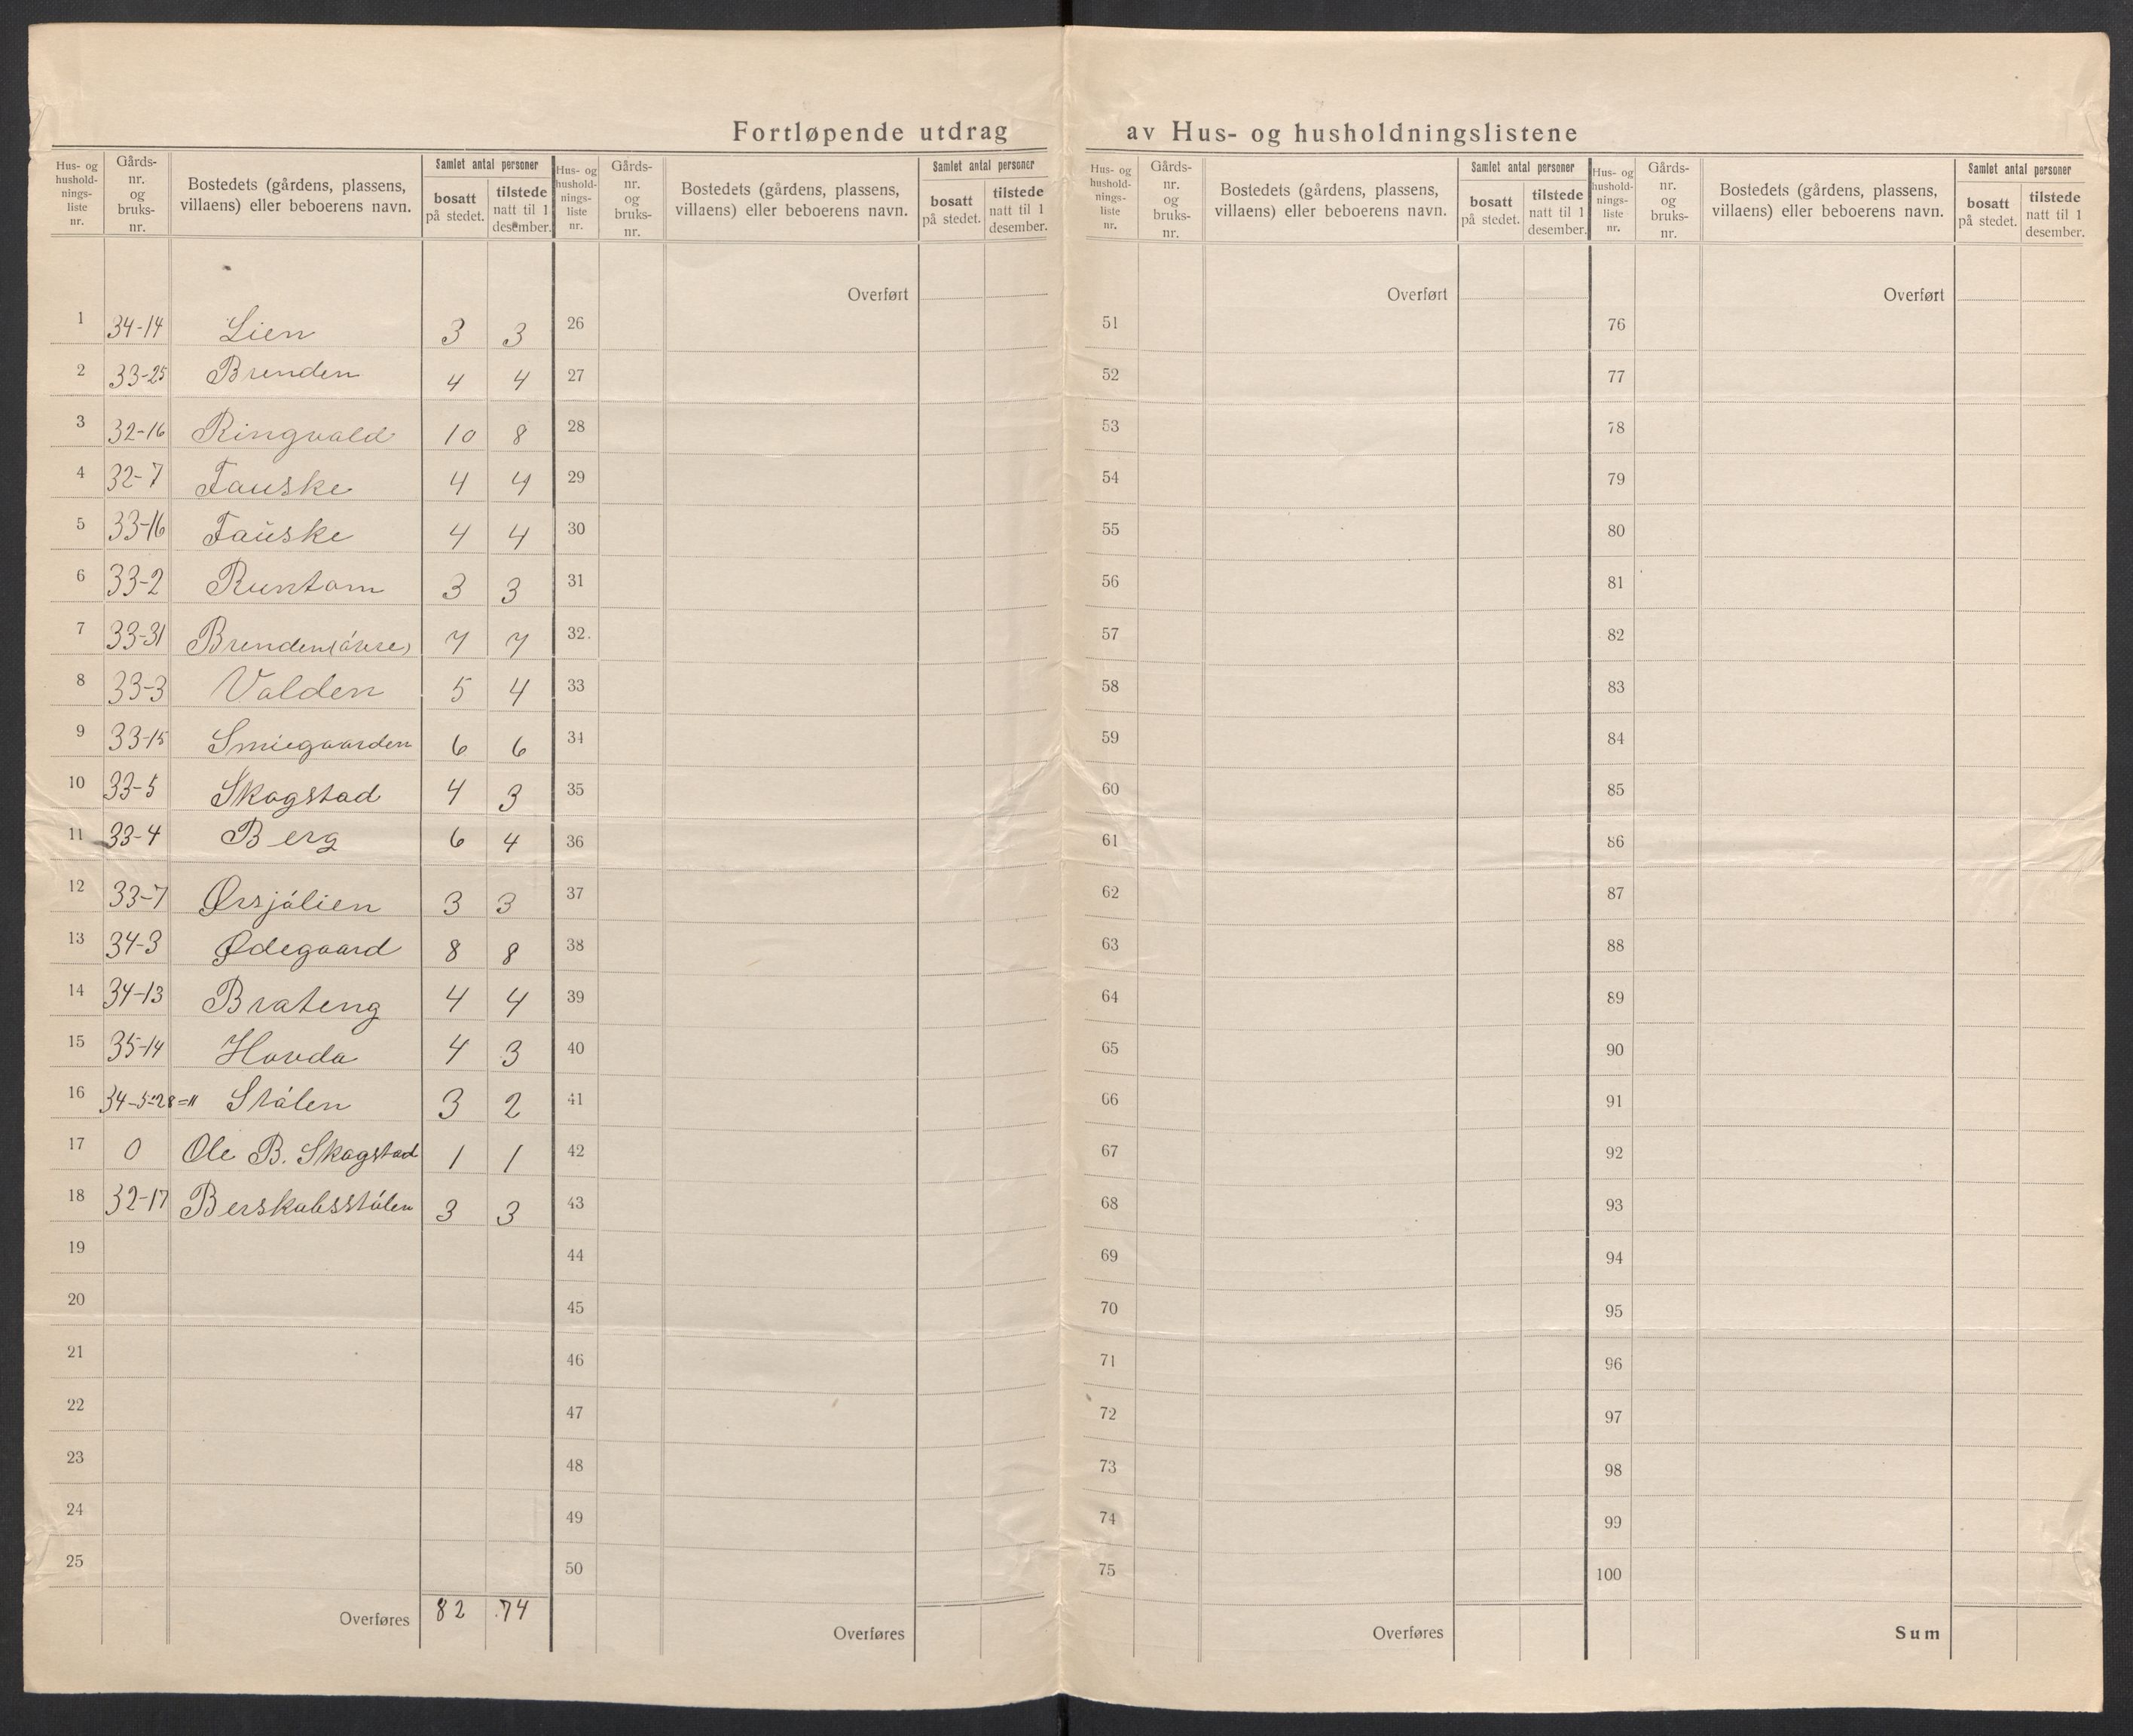 Fortløpende utdrag av Hus- og husholdningslistene
Hus- og husholdningsliste nr. | Gårds-nr. og bruks-nr. | Bostedets (gårdens, plassens, villaens) eller beboerens navn. | Samlet antal personer | bosatt på stedet. | tilstede natt til 1 desember.
Hus- og husholdningsliste nr. | Gårds-nr. og bruks-nr. | Bostedets (gårdens, plassens, villaens) eller beboerens navn. | Samlet antal personer | bosatt på stedet. | tilstede natt til 1 desember.
Hus- og husholdningsliste nr. | Gårds-nr. og bruks-nr. | Bostedets (gårdens, plassens, villaens) eller beboerens navn. | Samlet antal personer | bosatt på stedet. | tilstede natt til 1 desember.
Hus- og husholdningsliste nr. | Gårds-nr. og bruks-nr. | Bostedets (gårdens, plassens, villaens) eller beboerens navn. | Samlet antal personer | bosatt på stedet. | tilstede natt til 1 desember.
1 34-14 Lien 3 3
2 33-25 Brenden 4 4
3 32-16 Ringvald 10 8
4 32-7 Fauske 4 4
5 33-16 Fauske 4 4
6 33-2 Runtom 3 3
7 33-31 Brenden (övre) 7 7
8 33-3 Volden 5 4
9 33-15 Smiegaarden 6 6
10 33-5 Skogstad 4 3
11 33-4 Berg 6 4
12 33-7 Ørsjölien 3 3
13 34-3 Ødegaard 8 8
14 34-13 Brateng 4 4
15 35-14 Hovda 4 3
16 34-5=28=11 Stölen 3 2
17 0 Ole B. Skogstad 1 1
18 32-17 Berskabsstölen 3 3
19
20
21
22
23
24
25
Overføres 82 74
Overført
26
27
28
29
30
31
32.
33
34
35
36
37
38
39
40
41
42
43
44
45
46
47
48
49
50
Overføres
Overført
51
52
53
54
55
56
57
58
59
60
61
62
63
64
65
66
67
68
69
70
71
72
73
74
75
Overføres
Overført
76
77
78
79
80
81
82
83
84
85
86
87
88
89
90
91
92
93
94
95
96
97
98
99
100
Sum